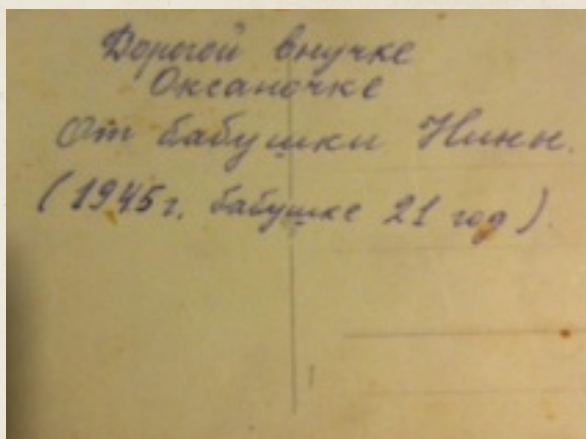 Дорогой внучке
Оксаночке
От бабушки Нины.
(1945г. бабушке 21 год)